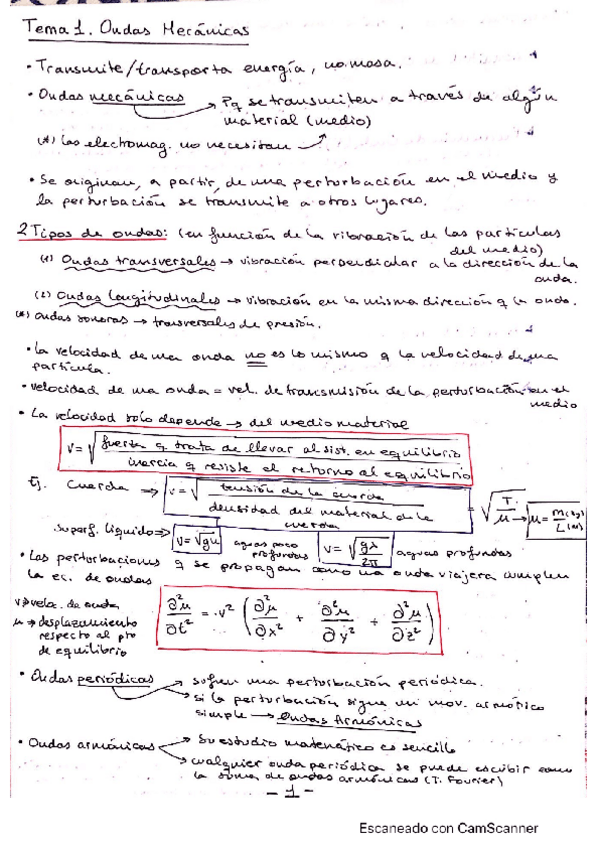 Tema 1. Ondas Mecánicas
• Transmite/transporta energía, no masa.
• Ondas mecánicas → Pq se transmiten a través de algún
material (medio)
(*) Las electromag. no necesitan
• Se originan, a partir, de una perturbación en el medio y
la perturbación se transmite a otros lugares.
2 Tipos de ondas: (en función de la vibración de las partículas
del medio)
(1) Ondas transversales → vibración perpendicular a la dirección de la
onda.
(2) Ondas longitudinales → vibración en la misma dirección q la onda.
(*) Ondas sonoras → transversales de presión.
• La velocidad de una onda no es lo mismo q la velocidad de una
partícula.
• velocidad de una onda = vel. de transmisión de la perturbación en el
medio
• La velocidad solo depende → del medio material
v = √ fuerza q trata de llevar al sist. en equilibrio
inercia q resiste el retorno al equilibrio
Ej. Cuerda → v = √ tensión de la cuerda / densidad del material de la cuerda = √ T / μ → μ = M(kg) / L(m)
Superf. líquido ⇒ v = √gh aguas poco profundas v = √ gλ / 2π aguas profundas
• Las perturbaciones q se propagan como una onda viajera cumplen
la ec. de ondas
v → veloc. de onda
μ → desplazamiento
respecto al pto
de equilibrio
∂²μ / ∂t² = v² ( ∂²μ / ∂x² + ∂²μ / ∂y² + ∂²μ / ∂z² )
• Ondas periódicas → sufren una perturbación periódica.
→ si la perturbación sigue un mov. armónico
simple → Ondas Armónicas
• Ondas armónicas → Su estudio matemático es sencillo
→ cualquier onda periódica se puede escribir como
la suma de ondas armónicas (T. Fourier)
- 1 -
Escaneado con CamScanner